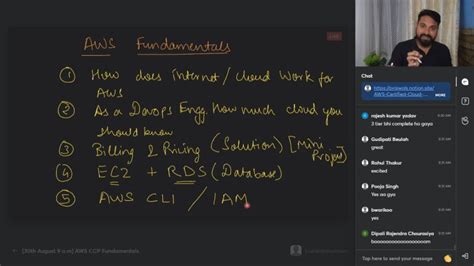 AWS Fundamentals
LIVE
① How does internet / cloud work for
AWS
② As a Devops Engg. How much cloud you
should know
③ Billing & Pricing (Solution) [Mini
Project]
④ EC2 + RDS (Database)
⑤ AWS CLI / IAM
[30th August 9 a.m] AWS CCP Fundamentals
Chat
AWS-Certified-Cloud-
rajesh kumar yadav
3 tier bhi complete ho gaya
Gudipati Beulah
great
Rahul Thakur
excited
Pooja Singh
Yes as ap
bworikoo
yes
Dipali Rajendra Chourasiya
Tap here to send a message